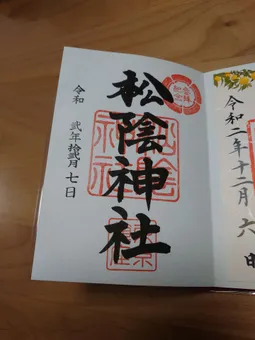 松陰神社
令和 弐年拾弐月七日
令和二年十二月六日